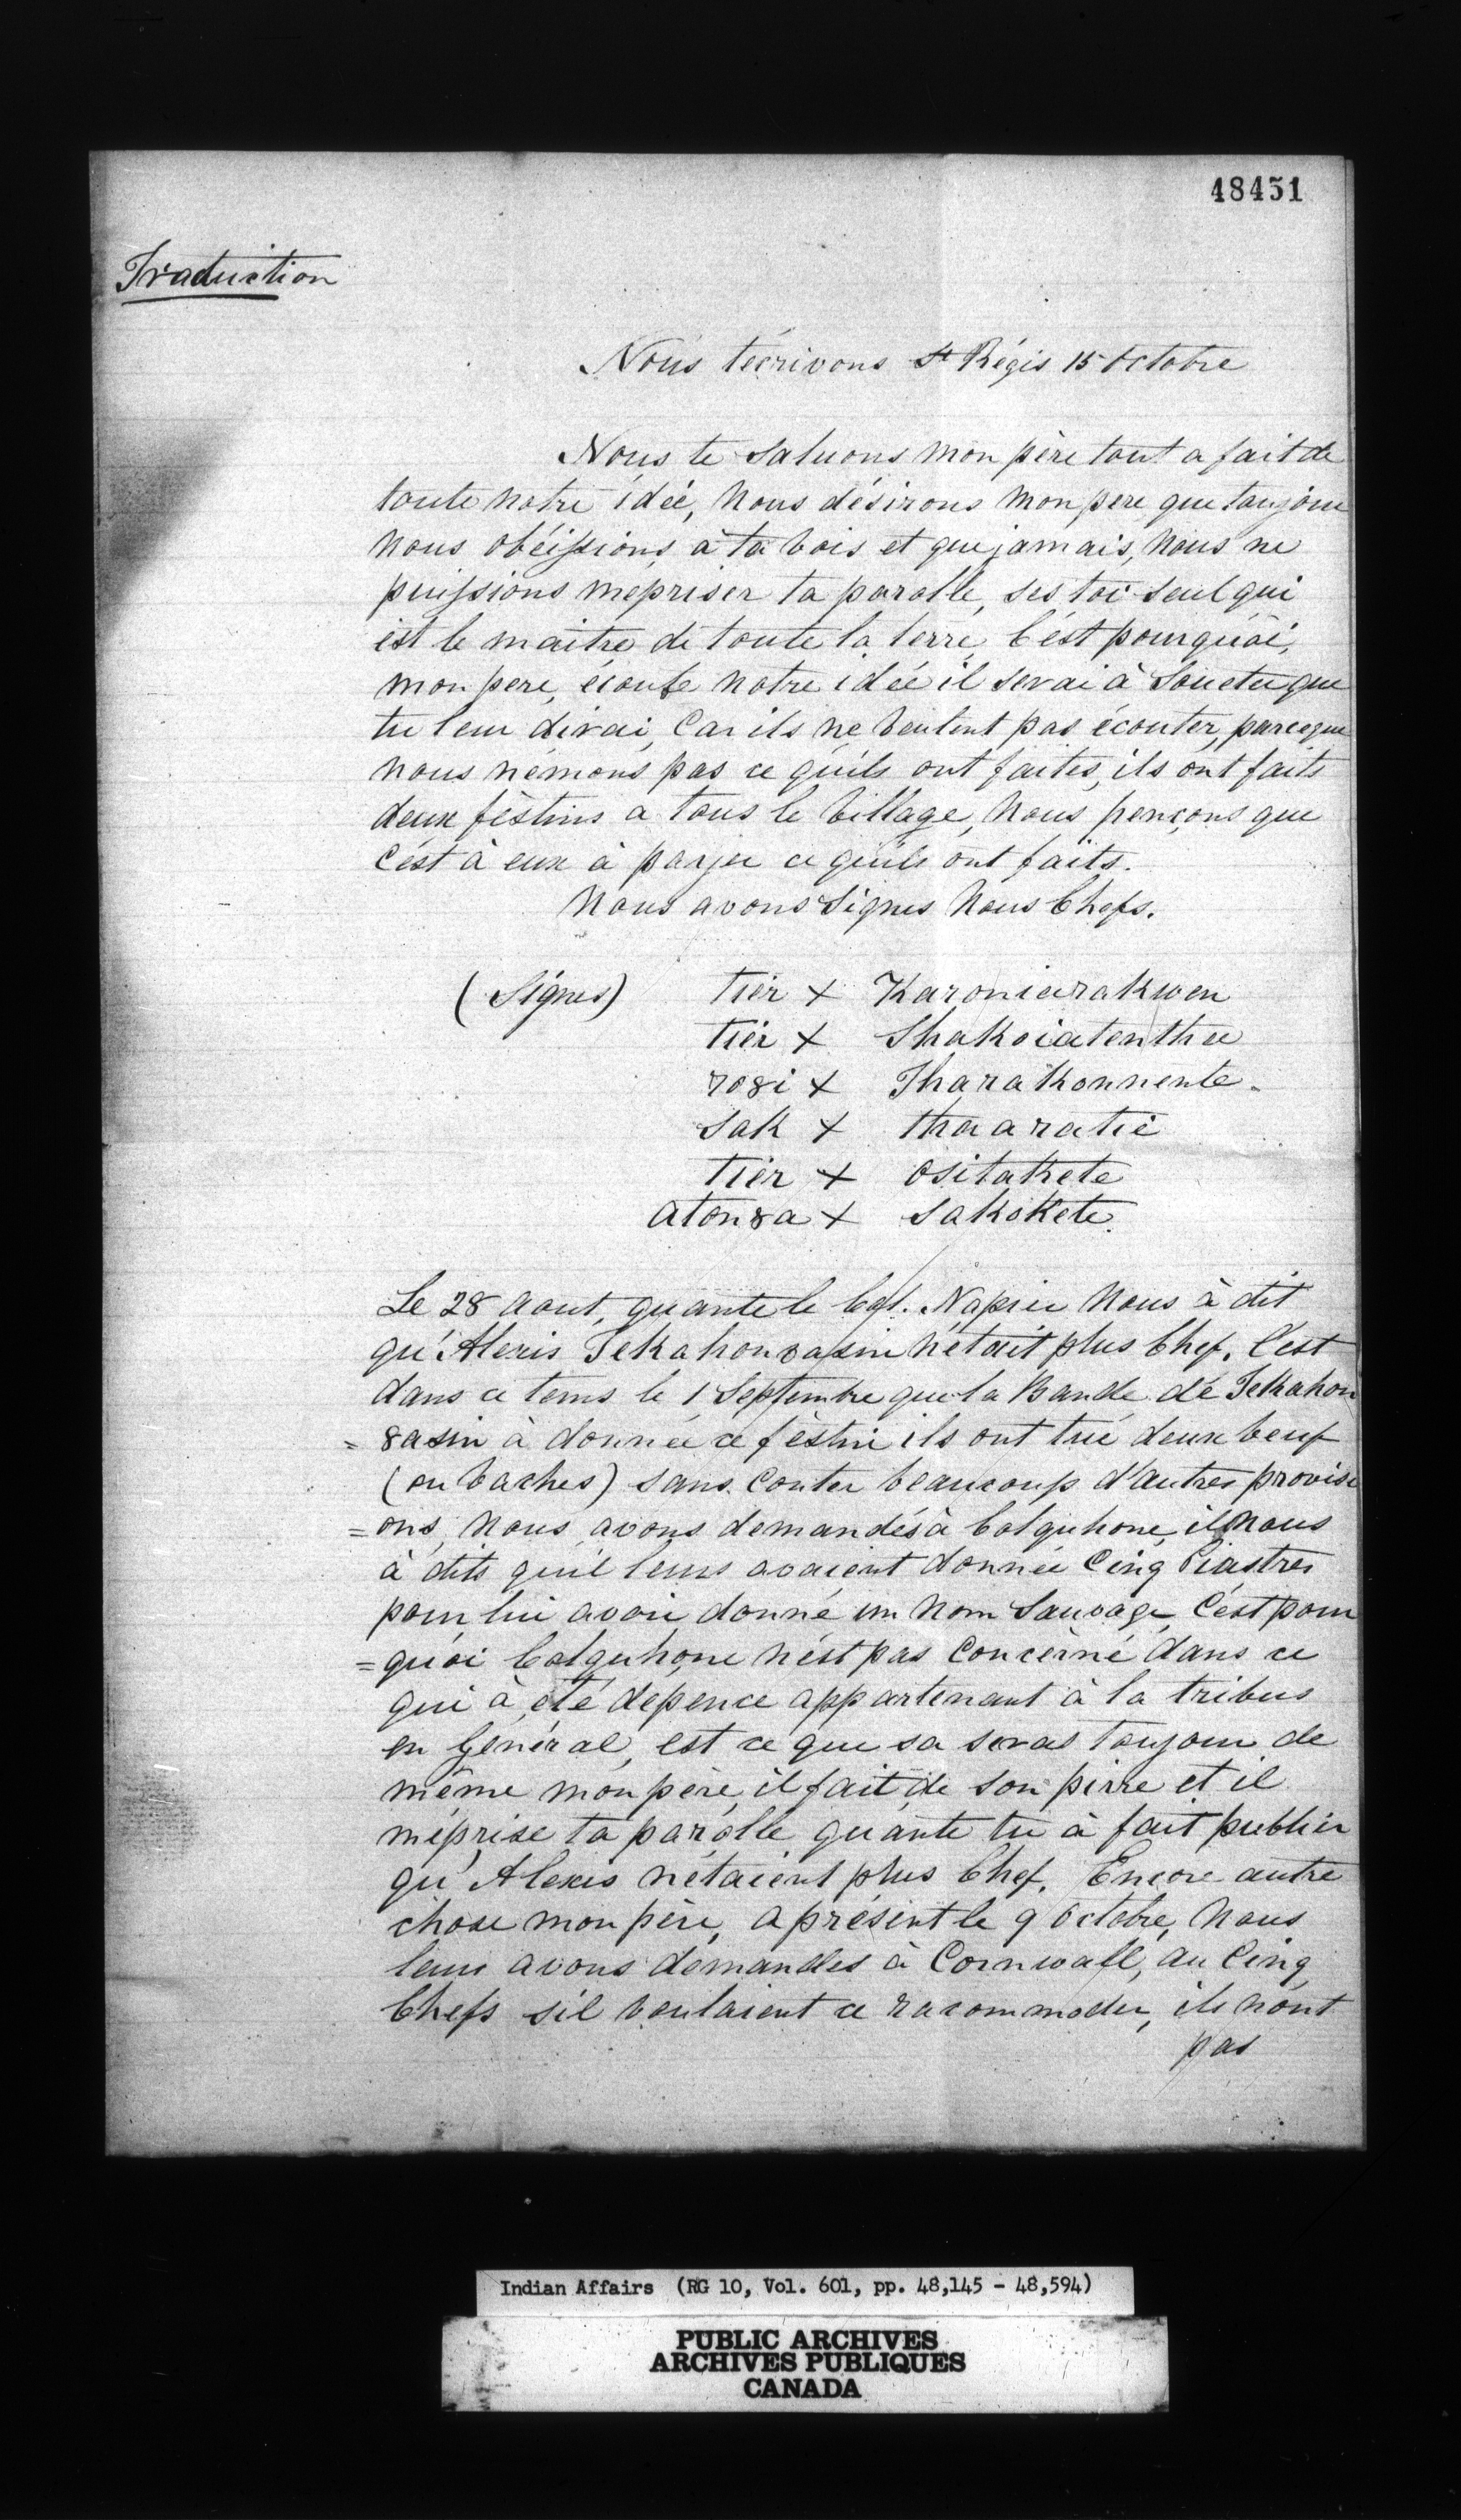 48451
Traduction
Nous t'écrivons St Régis 15 Octobre
Nous te saluons mon père tout a fait de
toute notre idée, nous désirons mon pere que toujour
nous obéissions à ta vois et que jamais, nous ne
puissions mepriser ta parolle, ses toi seul qui
est le maitre de toute la terre, C'ést pourquoi,
mon pere, écoute notre idée il serai à Souetee que
tu leur dirai, Car ils ne veulent pas écouter, parceque
nous n'émons pas ce qu'ils ont faites, ils ont faits
deux féstins a tous le village, nous pençons que
C'ést à eux à payer ce qu'ils ont faits.
Nous avons Signes Nous Chefs.
(Signes) tier + Karoniarakwen
tier + Shakoiatentha
ro8i + Tharakonnente.
Sak + thaaratie
tier + Ositakete
aton8a + Sakokete.
Le 28 Aout, quante le Col. Napier nous à dit
qu'Alexis Tekahon8asin n'était plus Chef. C'est
dans ce tems le 1 Septembre que la Bande de Tekahon
= 8asin à donnée ce féstin ils ont tué deux beuf
(ou vaches) sans conter beaucoup d'autres provisi
= ons, nous avons demandés à Colquhone, il nous
à dits qu'il leurs avaient donnée Cinq Piastres
pour lui avoir donné un nom Sauvage, C'ést pour
= quoi Colquhone n'ést pas Concèrné dans ce
qui à été depence appartenant à la tribus
en Général, est ce que sa seras toujour de
même mon père, il fait de son pirre et il
méprise ta parolle quante tu à fait publier
qu'Alexis n'étaient plus Chef. Encore autre
chose mon père, a présent le 9 Octobre, nous
leur avons demandes à Cornwall, au Cinq
Chefs s'il voulaient ce racommoder, ils n'ont
pas
Indian Affairs (RG 10, Vol. 601, pp. 48,145 - 48,594)
PUBLIC ARCHIVES
ARCHIVES PUBLIQUES
CANADA